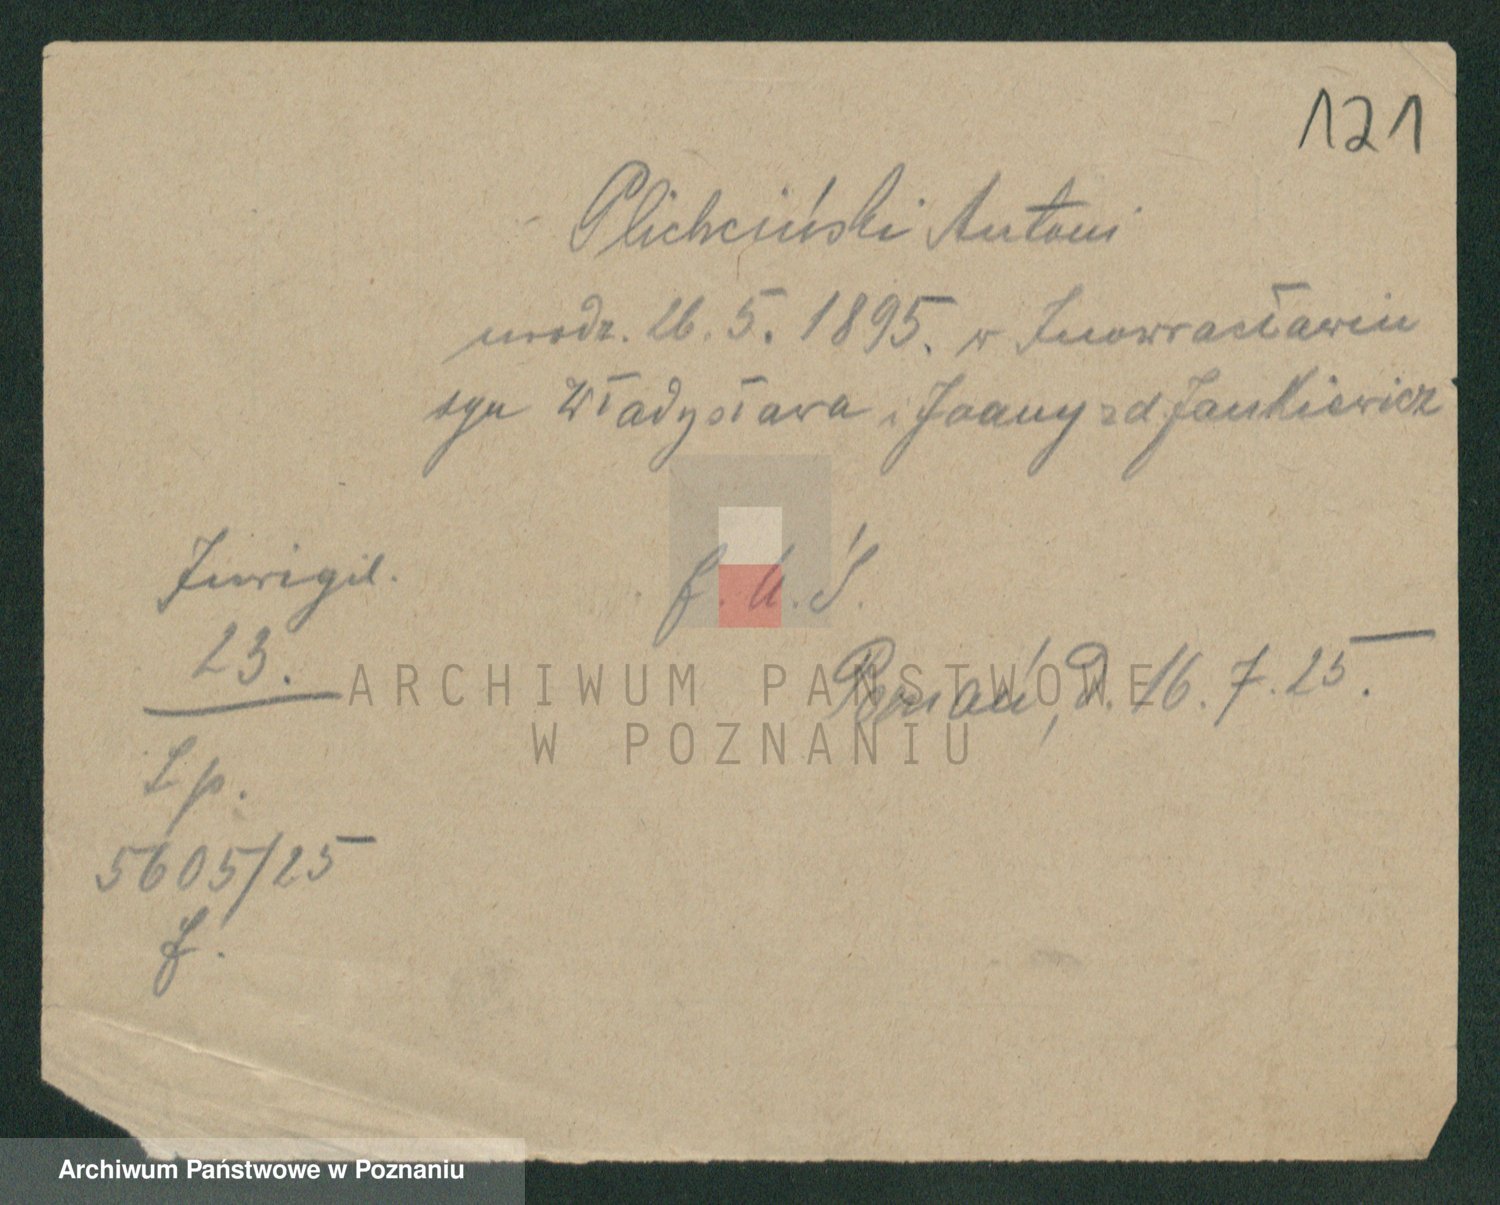 121
Plichciński Antoni
urodz. 26. 5. 1895. w Inowrocławiu
syn Władysława i Joanny zd Jankiewicz
Inwigil.
23.
f. U. Ś.
Poznań, d. 16. 7. 25.
ARCHIWUM PAŃSTWOWE
W POZNANIU
Lp.
5605/25
f.
Archiwum Państwowe w Poznaniu